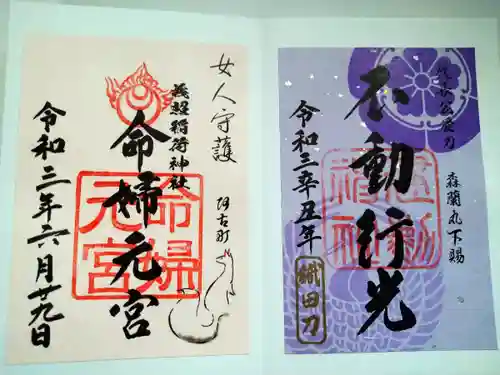 信長公愛刀
森蘭丸下賜
不動行光
建勲
神社
令和三辛丑年
織田刀
女人守護
阿古町
義照稲荷神社
命婦元宮
命婦
元宮
令和三年六月廿九日